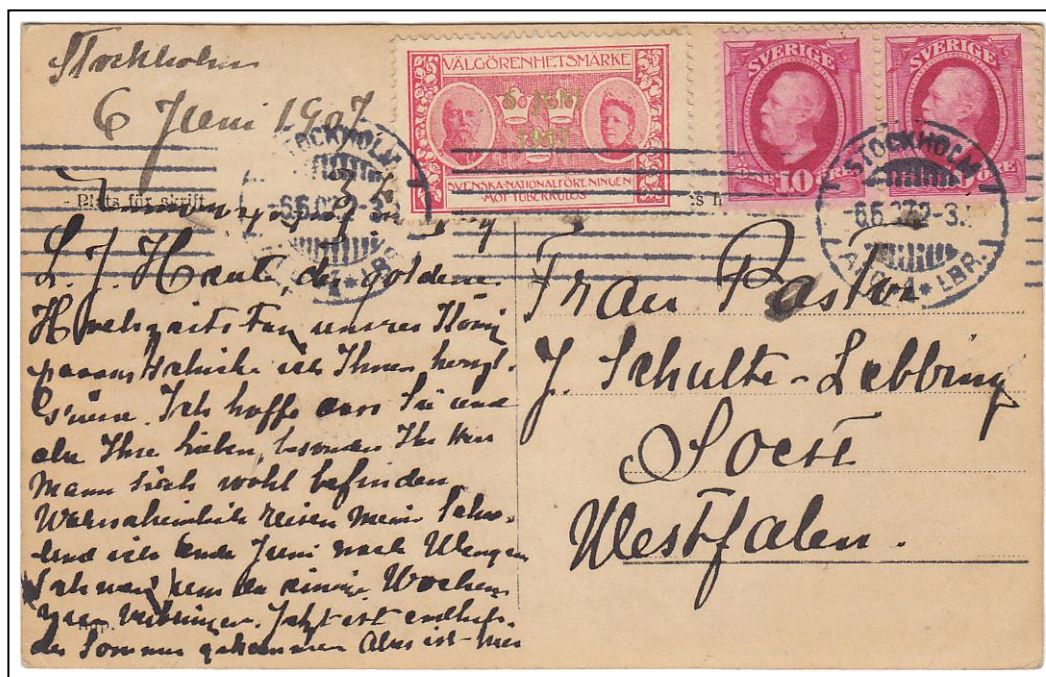 Stockholm
6 Juni 1907
VÄLGÖRENHETSMÄRKE
6 JUNI
1907
SVENSKA·NATIONALFÖRENINGEN
·MOT·TUBERKULOS·
SVERIGE
10
SVERIGE
STOCKHOLM
-6.6.07.2-3.
LBR.
STOCKHOLM
-6.6.07.2-3.
AFG. 1 * LBR.
Plats för skrift
L. J. Heute, der goldene
Hochzeits Tag unsres König
paares schicke ich Ihnen herzl.
Grüsse. Ich hoffe dass Sie und
alle Ihre Lieben, besonders Ihr Herr
Mann sich wohl befinden
Wahrscheinlich reisen meine Schw.
und ich Ende Juni nach
um da einige Wochen
verbringen. Jetzt ist endlich
der Sommer gekommen Alles ist hier
Frau Pastor
J. Schulte-Lebbing
Soest
Westfalen.